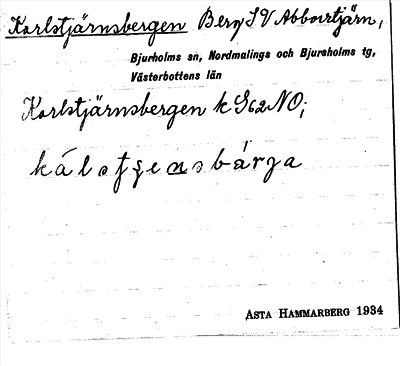 Karlstjärnsbergen Berg SV Abborrtjärn,
Bjurholms sn, Nordmalings och Bjurholms tg,
Västerbottens län
Karlstjärnsbergen k G62NO;
ASTA HAMMARBERG 1934